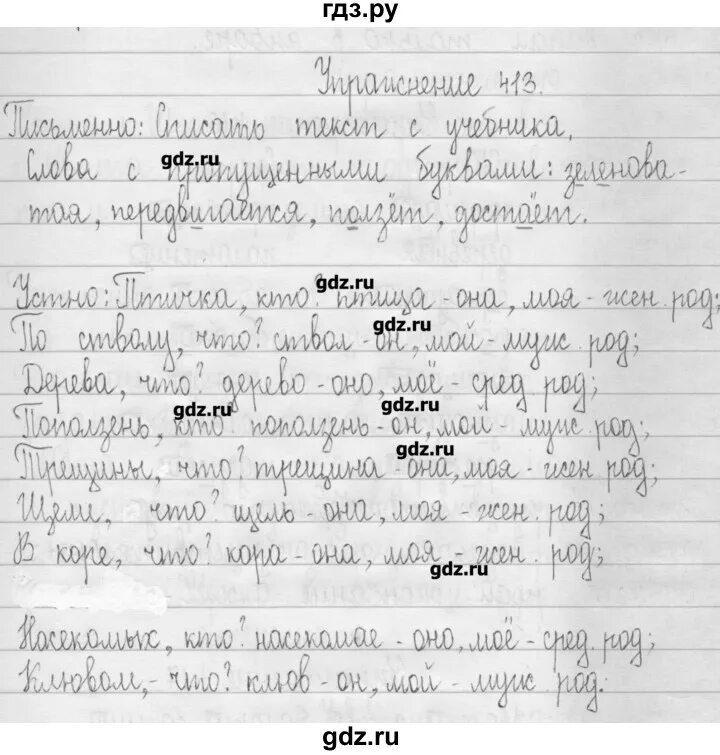 гдз.ру
Упражнение 413.
Письменно: Списать текст с учебника,
gdz.ru
Слова с пропущенными буквами: зеленова-
тая, передвигается, ползёт, достаёт.
gdz.ru
Устно: Птичка, кто? птица - она, моя - жен. род;
gdz.ru
По стволу, что? ствол - он, мой - муж. род;
Дерева, что? дерево - оно, моё - сред. род;
gdz.ru gdz.ru
Поползень, кто? поползень - он, мой - муж. род;
gdz.ru
Трещины, что? трещина - она, моя - жен. род;
Щели, что? щель - она, моя - жен. род;
В коре, что? кора - она, моя - жен. род;
gdz.ru
Насекомых, кто? насекомае - оно, моё - сред. род;
Клювом, - что? клюв - он, мой - муж. род.
gdz.ru